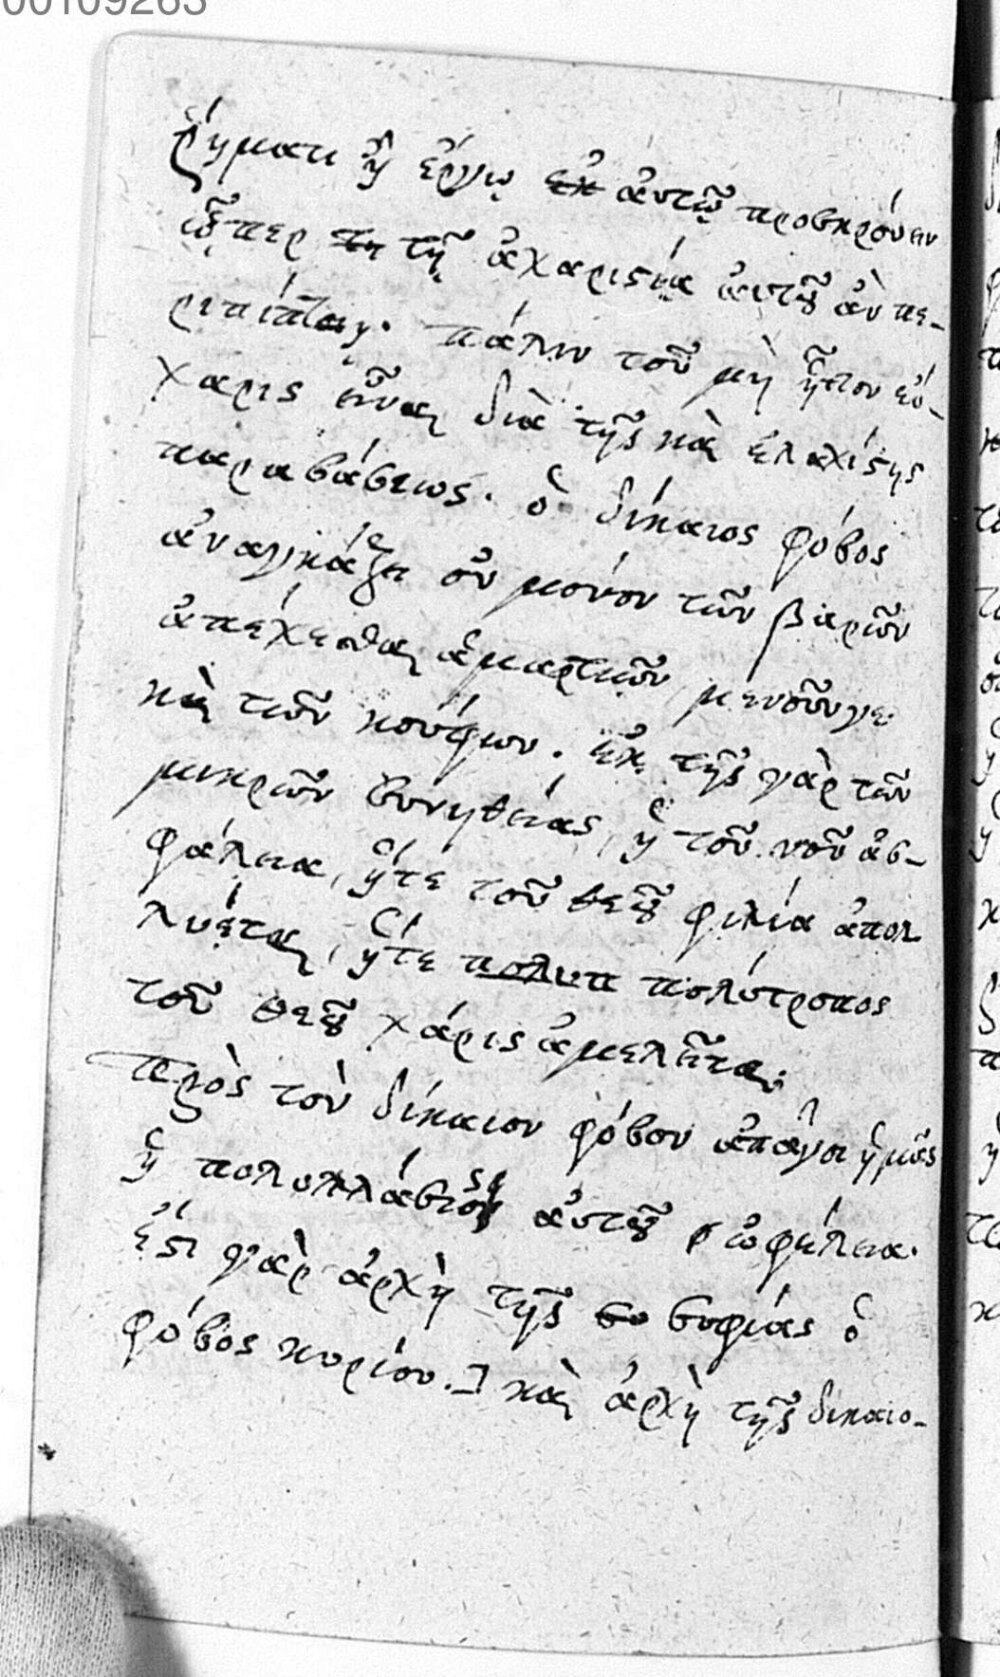 00109263
ῥήματι ἢ ἔργῳ ἐκ ἀυτῷ προσκρόυειν
ᾧπερ τη τῇ ἀχαριστίᾳ ἀυτοῦ ἀν πε-
ριπίπτῃ. πάλιν τοῦ μὴ ἧττον ἐύ-
χαρις εἶναι διὰ τῆς καὶ ἐλαχίστης
παραβάσεως. ὁ δίκαιος φόβος
ἀναγκάζει οὐ μόνον τῶν βαρῶν
ἀπέχεσθαι ἁμαρτιῶν, μενοῦνγε
καὶ τῶν κούφων. ἐκ τῆς γὰρ τῶν
μικρῶν συνηθείας, ἡ τοῦ νοῦ ἀσ-
φάλεια, ἥτε τοῦ θεοῦ φιλία ἀπολ
λύεται, ἥτε πολυπ πολύτροπος
τοῦ θεοῦ χάρις ἀμελεῖται.
Πρὸς τὸν δίκαιον φόβον ἀπάγει ἡμᾶς
ἡ πολυπλάσιος ἀυτοῦ ὠφέλεια.
ἔστι γὰρ ἀρχὴ τῆς σο σοφίας ὁ
φόβος κυρίου. καὶ ἀρχὴ τῆς δικαιο-